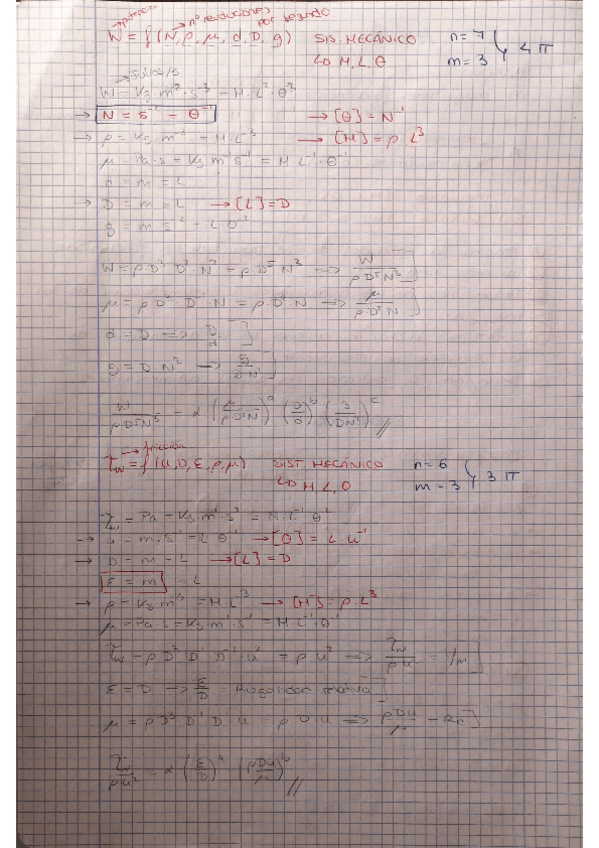 potencia nº revoluciones por segundo
W = f (N, ρ, μ, d, D, g) SIS. MECÁNICO n = 7
↳ M, L, θ m = 3 4 π
W = Kg m² · s⁻³ = M · L² · θ⁻³
→ N = s⁻¹ = θ⁻¹ → [θ] = N⁻¹
→ ρ = Kg m⁻³ = M · L⁻³ → [M] = ρ L³
μ = Pa · s = Kg m⁻¹ s⁻¹ = M L⁻¹ · θ⁻¹
d = m = L
→ D = m = L → [L] = D
g = m s⁻² = L θ⁻²
W = ρ D³ D² · N³ = ρ D⁵ N³ → W / ρ D⁵ N³
μ = ρ D³ · D⁻¹ · N = ρ D² N → μ / ρ · D² N
d = D → D / d
g = D N² → g / D N²
W / ρ D⁵ N³ = α (μ / ρ D² N)ᵃ (D / d)ᵇ (g / D N²)ᶜ //
fricción
τw = f (u, D, ε, ρ, μ) SIST. MECÁNICO n = 6
↳ M, L, θ m = 3 3 π
τw = Pa = Kg m⁻¹ s⁻² = M · L⁻¹ θ⁻²
→ u = m · s⁻¹ = L θ⁻¹ → [θ] = L · u⁻¹
→ D = m = L → [L] = D
ε = m = L
→ ρ = Kg m⁻³ = M L⁻³ → [M] = ρ · L³
μ = Pa · s = Kg · m⁻¹ s⁻¹ = M · L⁻¹ · θ⁻¹
τw = ρ D³ D⁻¹ D⁻² · u² = ρ u² → τw / ρ u²
ε = D → ε / D = Rugosidad relativa
μ = ρ D³ D⁻¹ D⁻¹ u = ρ D u → ρ D u / μ = Re
τw / ρ u² = α (ε / D)ᵃ (ρ D u / μ)ᵇ //